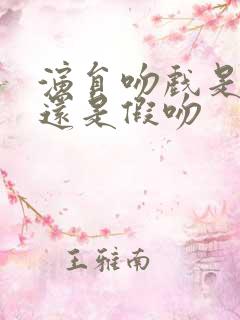 演员吻戏是
還是假吻
王雅南